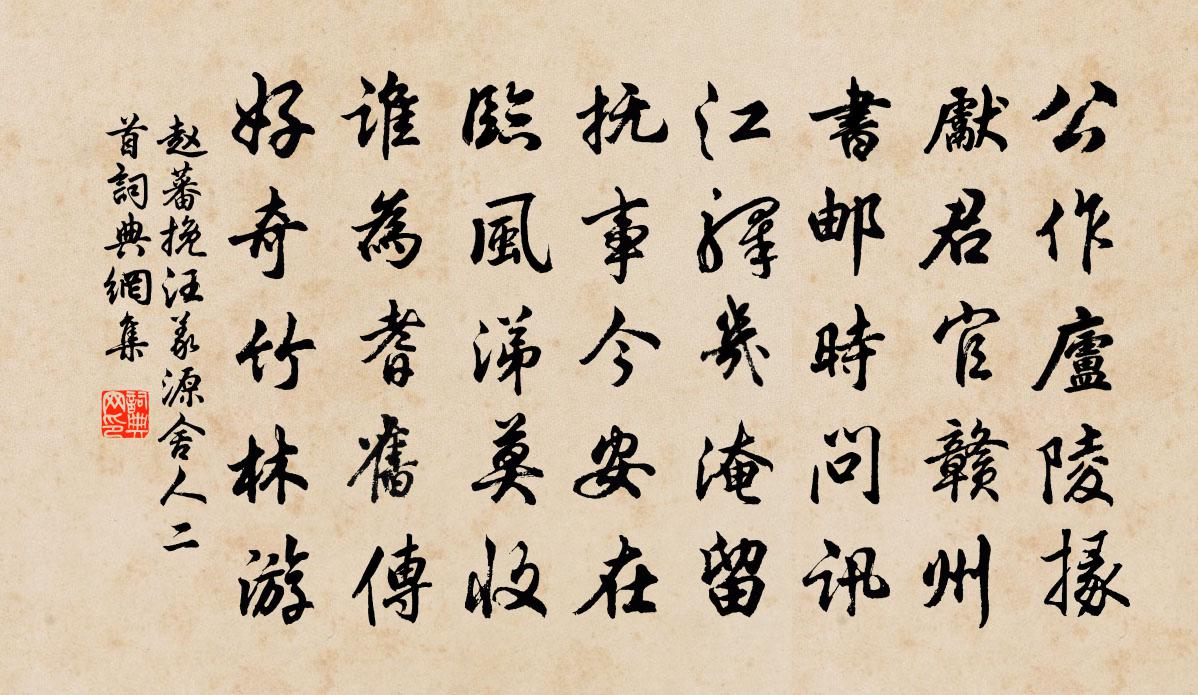 公作廬陵掾
獻君官赣州
書邮時問訊
江驛幾淹留
抚事今安在
臨風涕莫收
誰為耆舊傳
好奇竹林游
赵蕃挽汪义源舍人二
首詞典網集
詞典网印